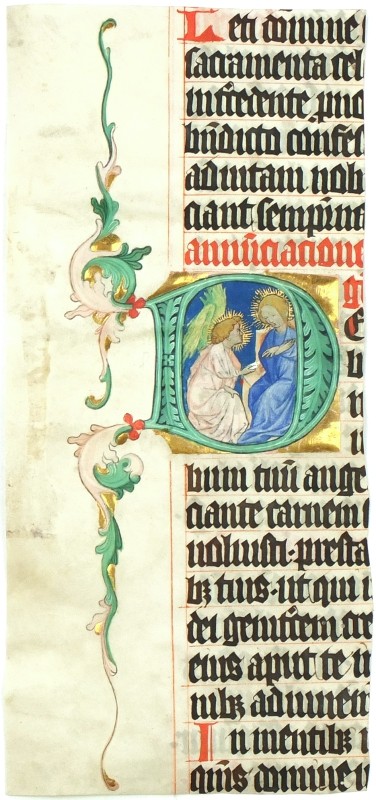 Leti domine
sacramenta cel
int'cedente pro
bñdicto confes
ad uitam nob
ciant sempitna
annūciacione
D
bum tuū ange
ciante carnem
uoluisti· presta
bȝ tuis· ut qui
dei genitcem cre
eius aput te
nibȝ adiuuem
In mentibȝ
quis domine